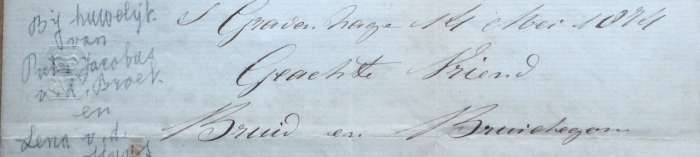 Bij huwelijk
van
Piet Jacobus
v. d. Broek
en
Lena v. d.
S Gravenhage 14 Mei 1874
Geachte Vriend
Bruid en Bruidegom